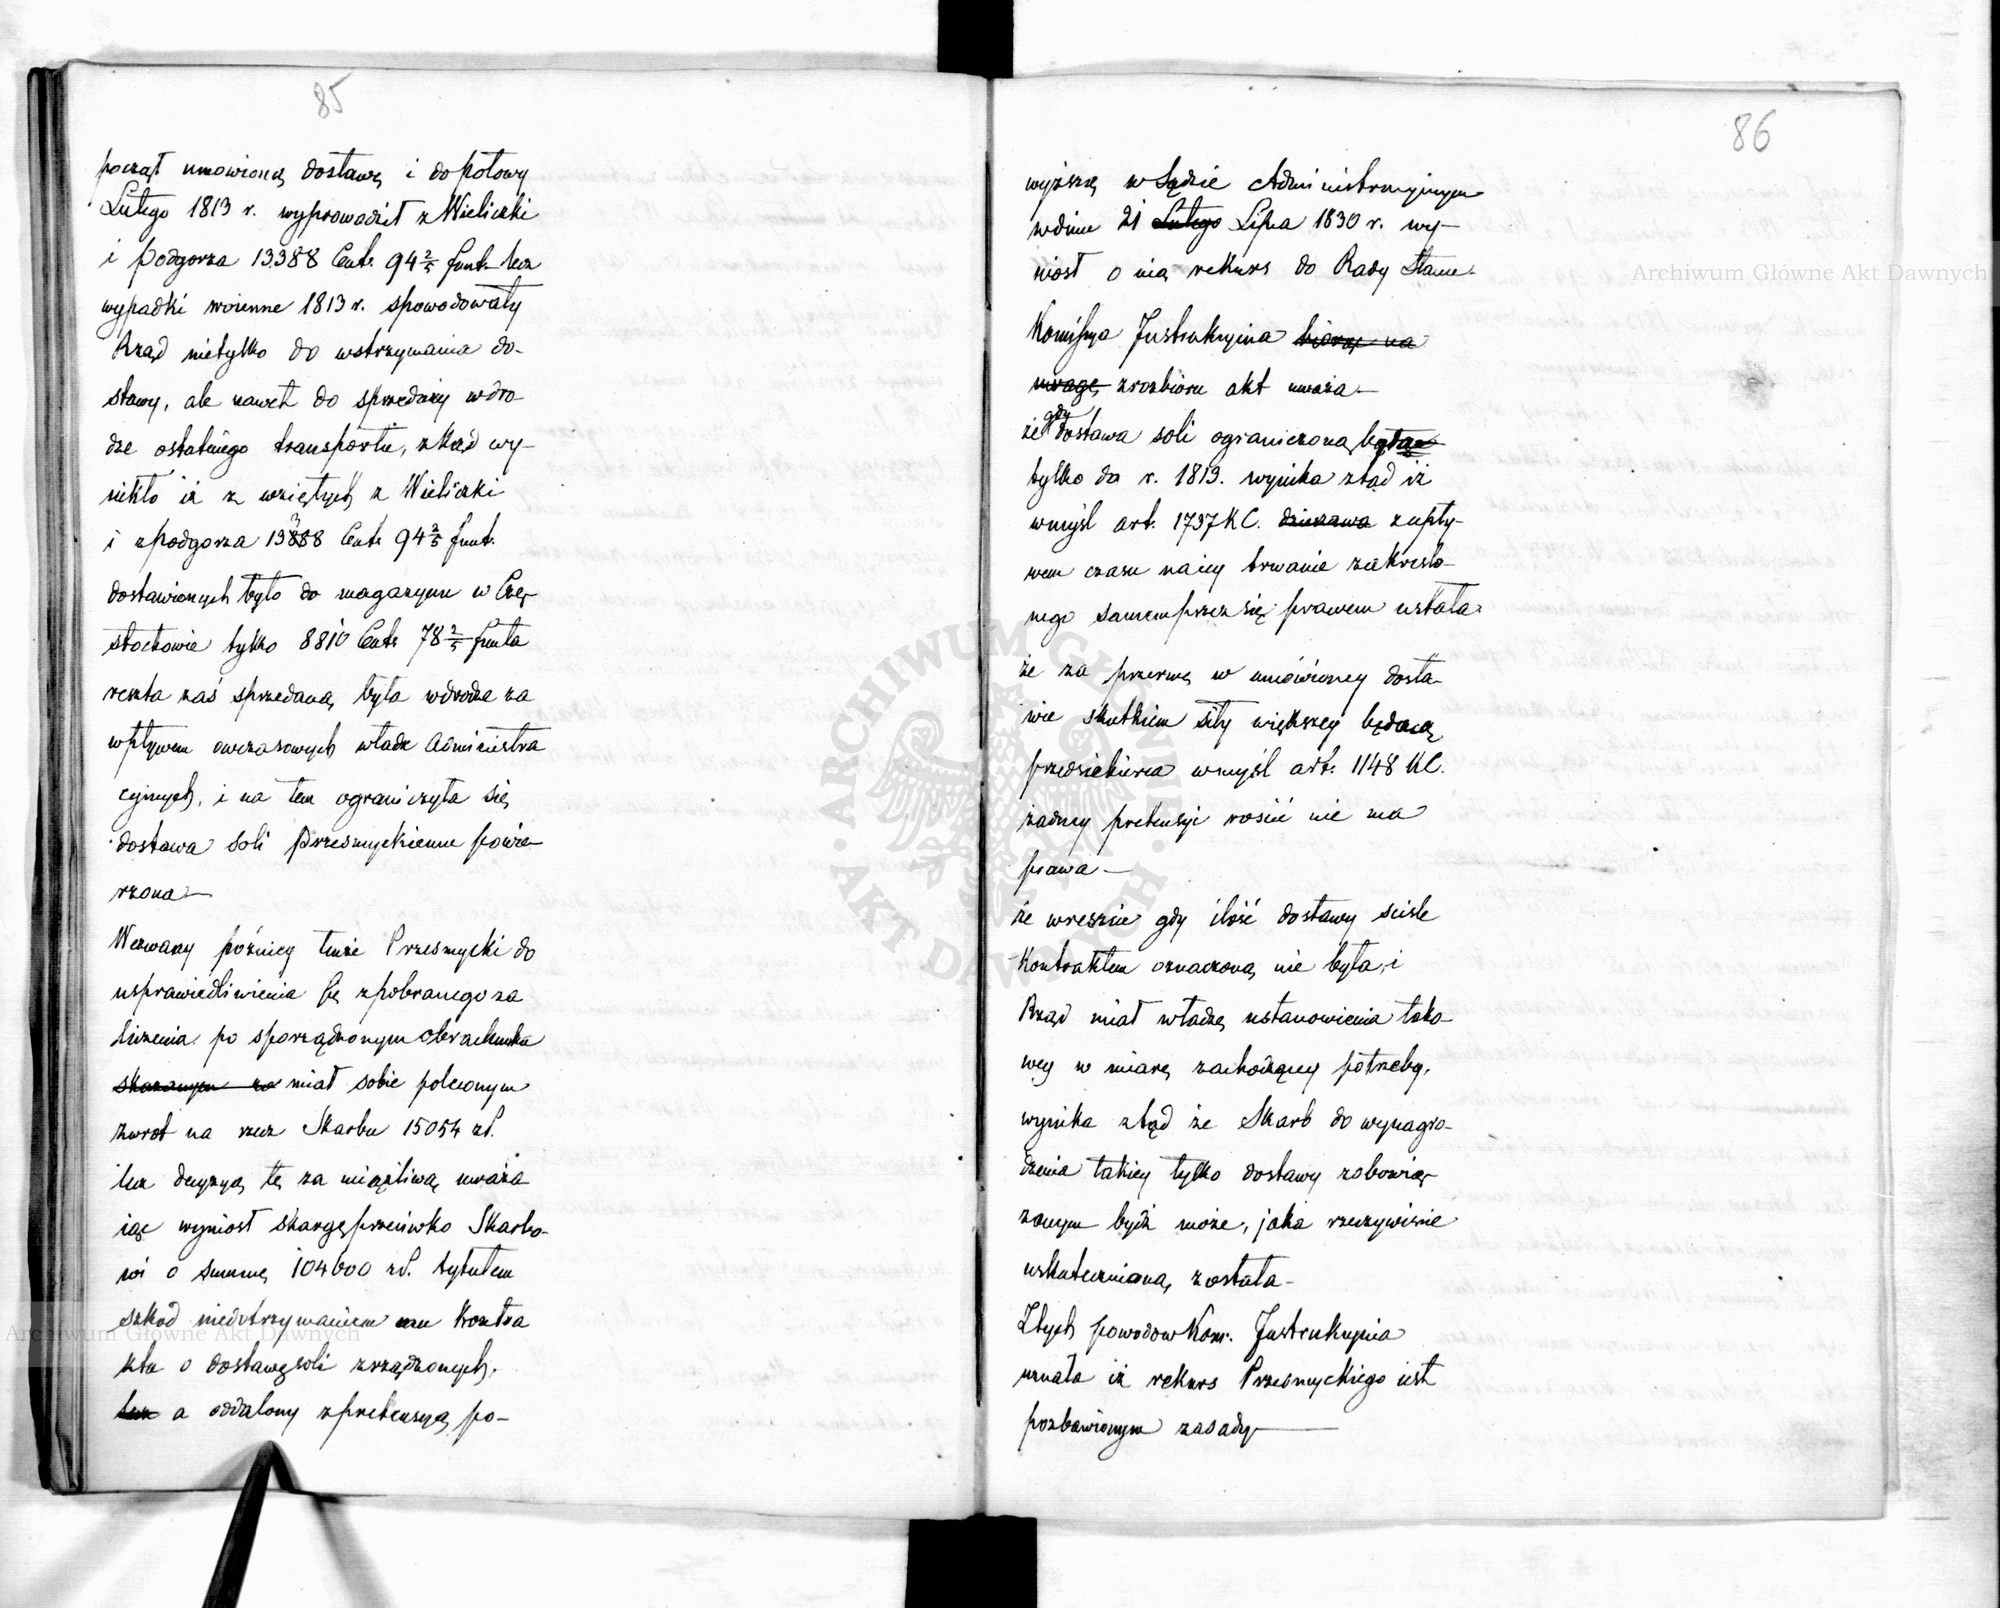 85
począł umowioną dostawę i do połowy
Lutego 1813 r. wyprowadził z Wieliczki
i Podgorza 13388 Cent. 94 2/5 funt. lecz
wypadki woienne 1813 r. spowodowały
Rząd nietylko do wstrzymania do-
stawy, ale nawet do sprzedaży wdro-
dze ostatniego transportu, zkąd wy-
nikło iż z wziętych z Wieliczki
i zPodgorza 13388 Cent. 94 2/5 funt.
dostawionych było do magazynu w Czę-
stochowie tylko 8810 Cent. 78 2/5 funta
reszta zaś sprzedaną była wdrodze za
wpływem owczasowych władz Administra
cyjnych, i na tem ograniczyła się
dostawa soli Przesmyckiemu powie-
rzona —
Wezwany późniey tenże Przesmycki do
usprawiedliwienia się zpobranego za
liczenia po sporządzonym obrachunku
skazanym za miał sobie poleconym
zwrot na rzecz Skarbu 15054 zł.
lecz decyzyą tę za uciążliwą uważa
iąc wyniosł skargę przeciwko Skarbo-
wi o summę 104600 zł. tytułem
szkod niedotrzymaniem mu Kontra
ktu o dostawę soli zrządzonych,
lecz a oddalony zpretensyą po-
86
wyższą w Sądzie Administracyinym
wdniu 21 Lutego Lipca 1830 r. wy-
niosł o nią rekurs do Rady Stanu.
Komissya Instrukcyina biorąc na
uwagę zrozbioru akt uważa —
że gdy dostawa soli ograniczoną była
tylko do r. 1813. wynika ztąd iż
wmyśl art. 1737 KC. dzierzawa zupły-
wem czasu na iey trwanie zakreślo-
nego samem przez się prawem ustała
że za przerwę w umówioney dosta-
wie skutkiem siły większey będącą
przedsiebierca wmyśl art. 1148 KC.
żadney pretensyi rościć nie ma
prawa —
że wreszcie gdy ilość dostawy ściśle
Kontraktem oznaczoną nie była, i
Rząd miał władzę ustanowienia tako-
wey w miarę zachodzącey potrzeby,
wynika ztąd że Skarb do wynagro-
dzenia takiey tylko dostawy zobowią-
zanym bydź może, jaka rzeczywiście
uskutecznioną została —
Ztych powodow Kom. Instrukcyina
uznała iż rekurs Przesmyckiego iest
pozbawionym zasady —
Archiwum Główne Akt Dawnych
Archiwum Główne Akt Dawnych
ARCHIWUM GŁÓWNE AKT DAWNYCH